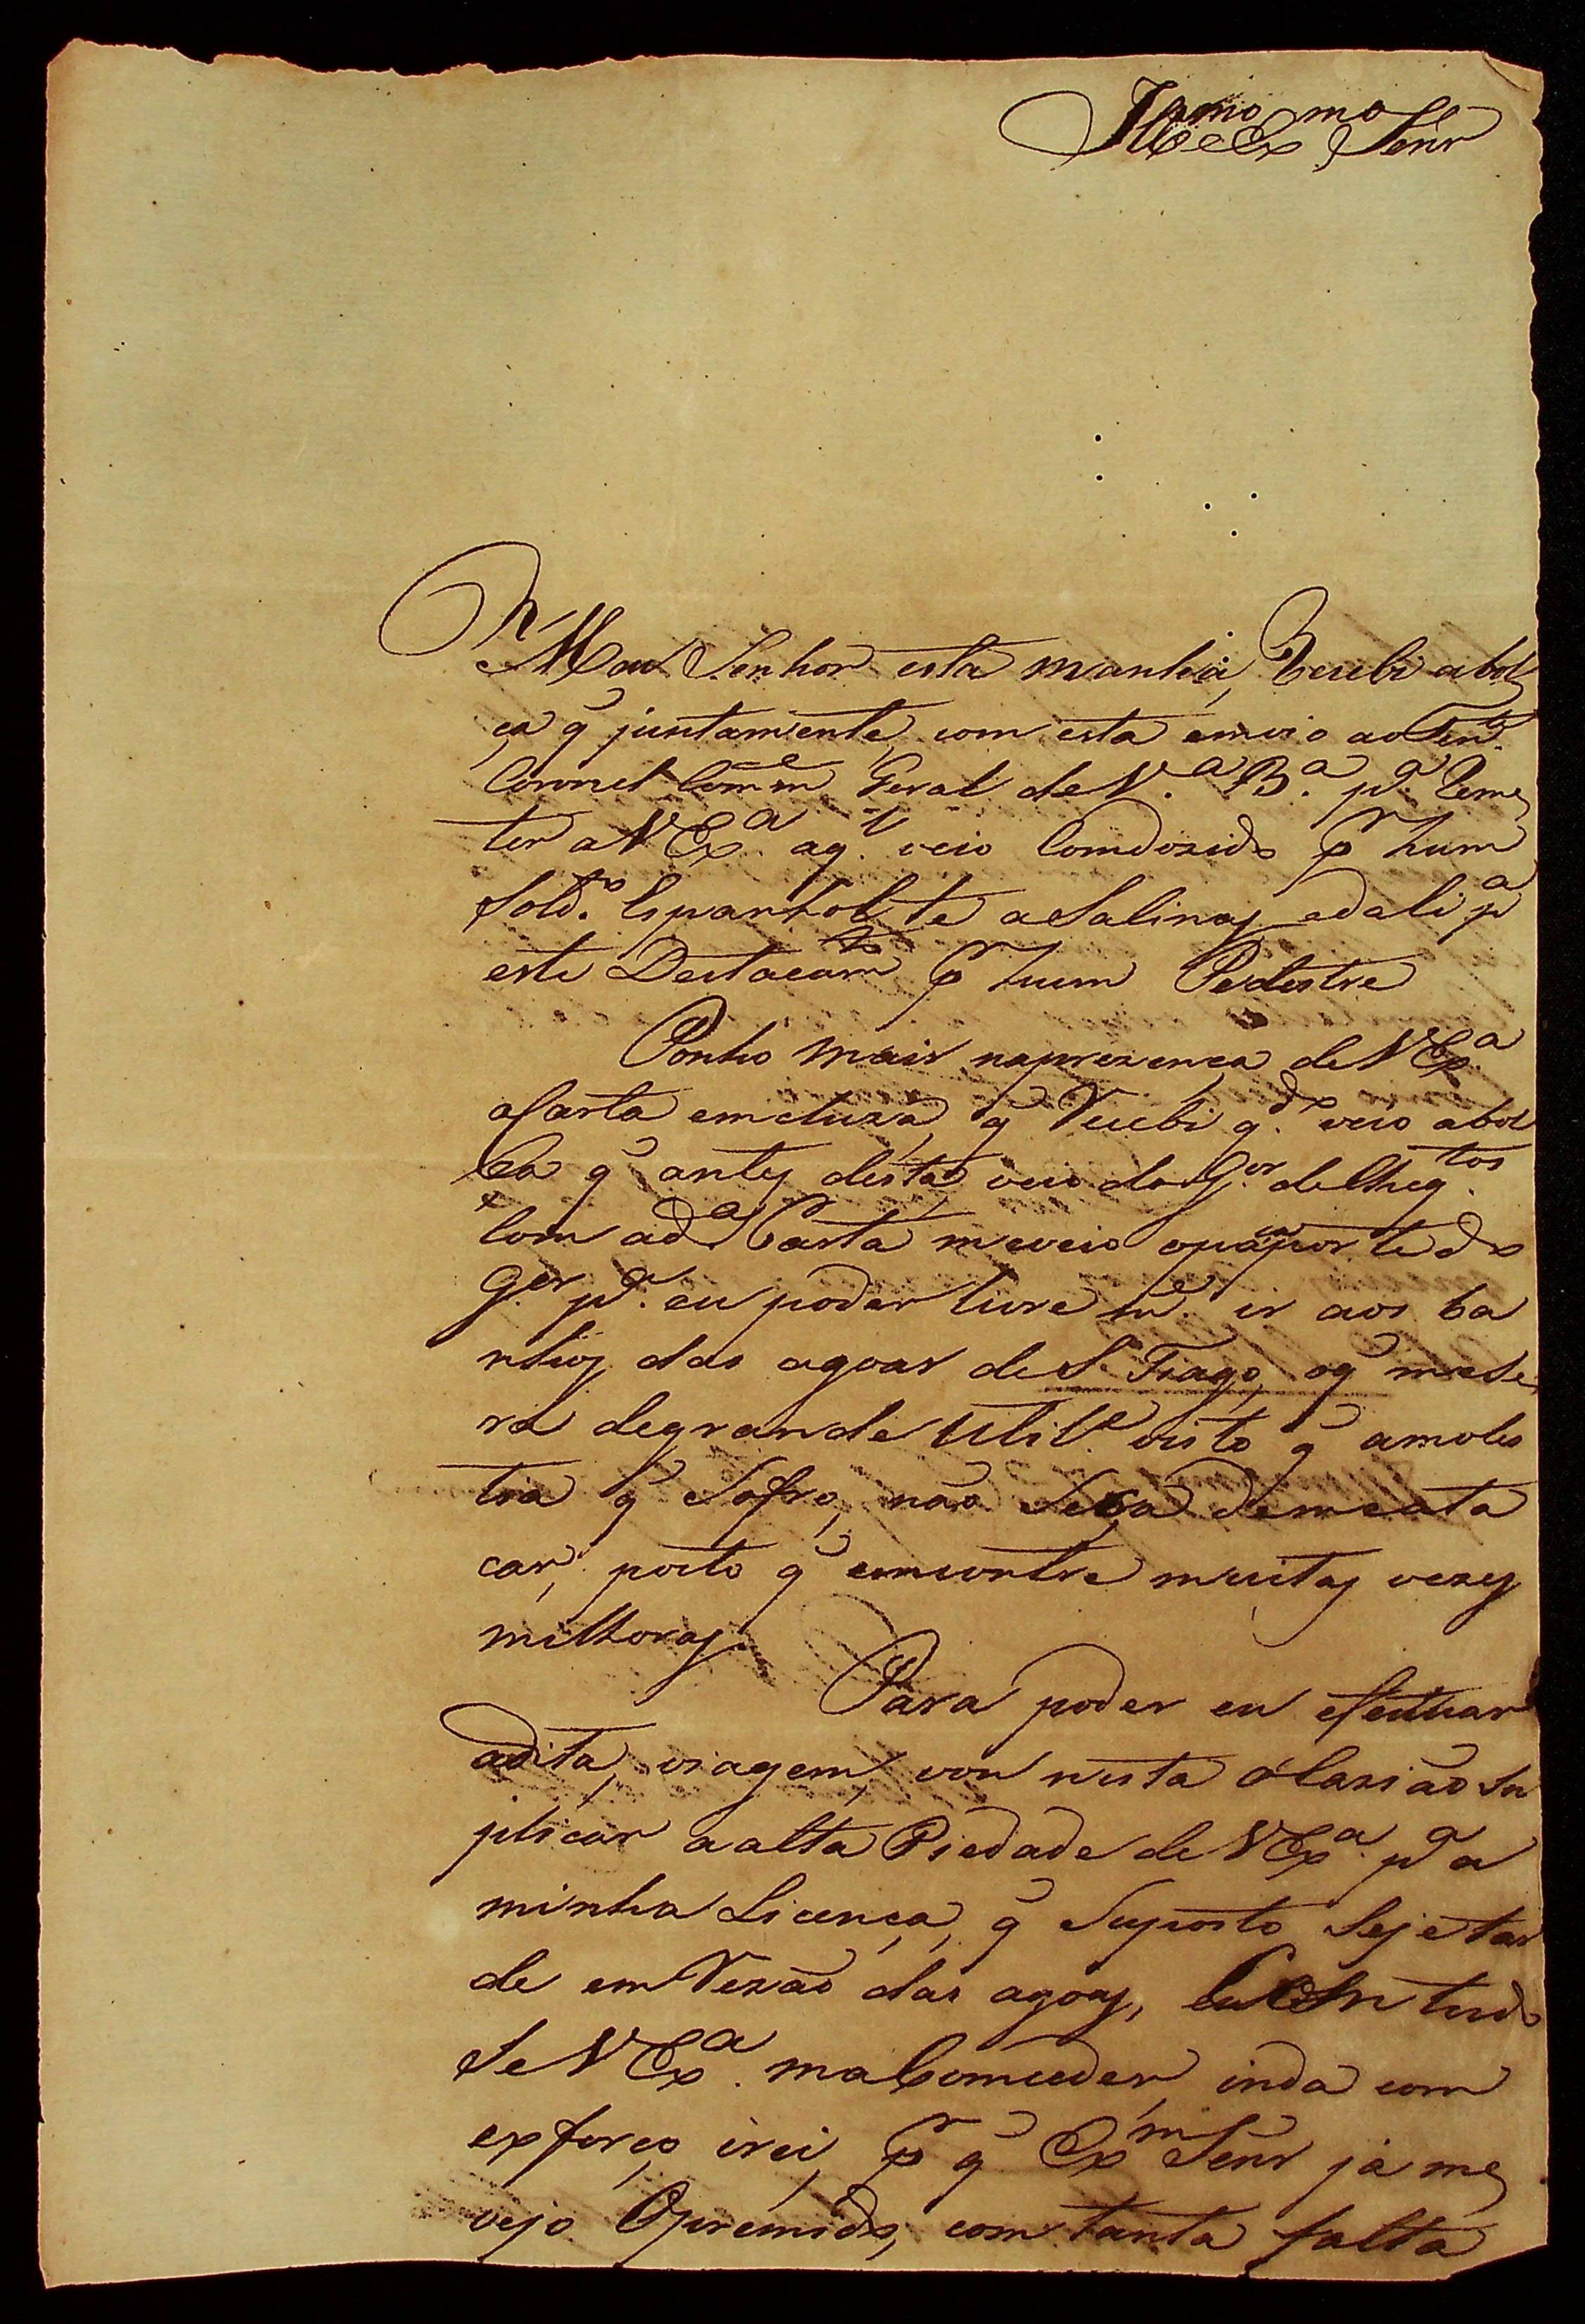 Illmo e Exmo Senr
Meu Senhor esta manhã, Recebi abol
ça q̃ juntamente, com esta emvio ao Tente.
Coronel Comme Geral de Va. Ba. pa. Reme
ter a V Exa. aql. veio Comdozido pr hum
Soldo. Espanhol te a Salinas, e dali pa
este Destacamto pr hum Pedestre
Ponho mais, na prezença de V Exa
a Carta emcluza, q̃ Recebi qdo. veio abol
ça q̃ antes desta, veio do Gor. de Cheqtos.
Com a da. Carta me veio opaçaporte do
Gor. pa. eu poder livre me. ir aos ba
nhos das agoas de S. Tiago, oq̃ me se
rá de grande Utile. visto q̃ amoles
tia q̃ Sofro, não Seça de me ata
car, posto q̃ emcontre muitas vezes
milhoras.
Para poder eu efectuar
adita, viagem, vou nesta Ocazião Su
plicar a alta Piedade de V Exa. pa a
minha Licença, q̃ Suposto Seje tar
de em Rezão das agoas, Com tudo
Se V Exa. ma Comceder, inda com
exforço, irei, pr q̃ Exm Senr já me
vejo Opremido, com tanta falta